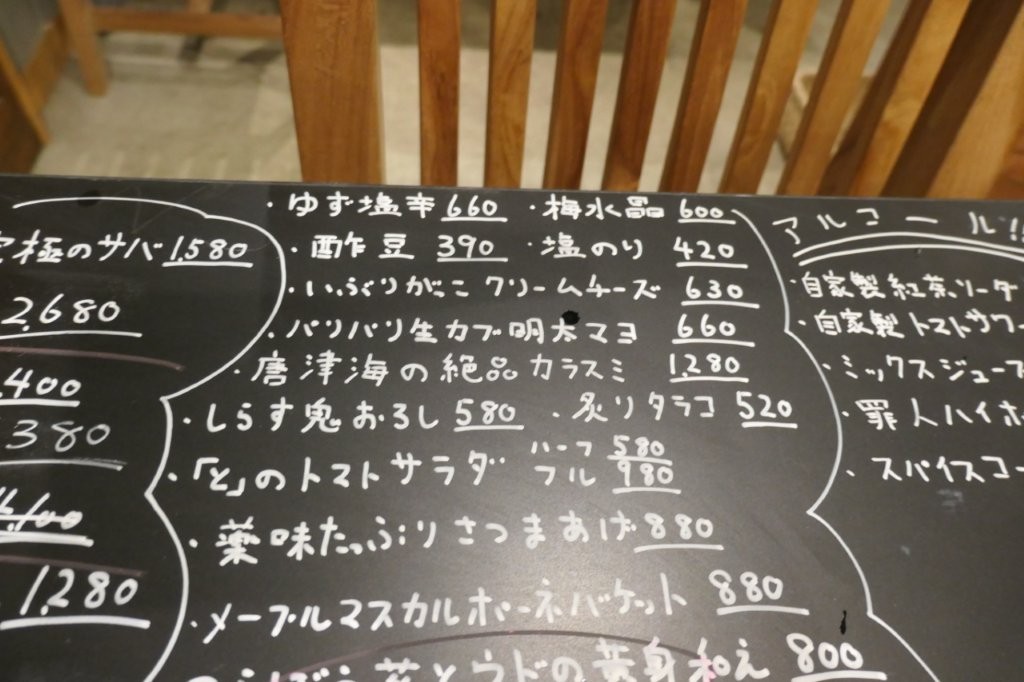 究極のサバ 1,580
2,680
400
380
1,280
・ゆず塩辛 660 ・梅水晶 600
・酢豆 390 ・塩のり 420
・いぶりがっこクリームチーズ 630
・パリパリ生カブ明太マヨ 660
・唐津海の絶品カラスミ 1,280
・しらす鬼おろし 580 ・炙りタラコ 520
・「と」のトマトサラダ ハーフ 580
フル 980
・薬味たっぷりさつまあげ 880
・メープルマスカルポーネバケット 880
とウドの黄身和え 800
アルコール!!
・自家製紅茶ソーダ
・自家製トマトサワー
・ミックスジュース
・罪人ハイボ
・スパイスコー